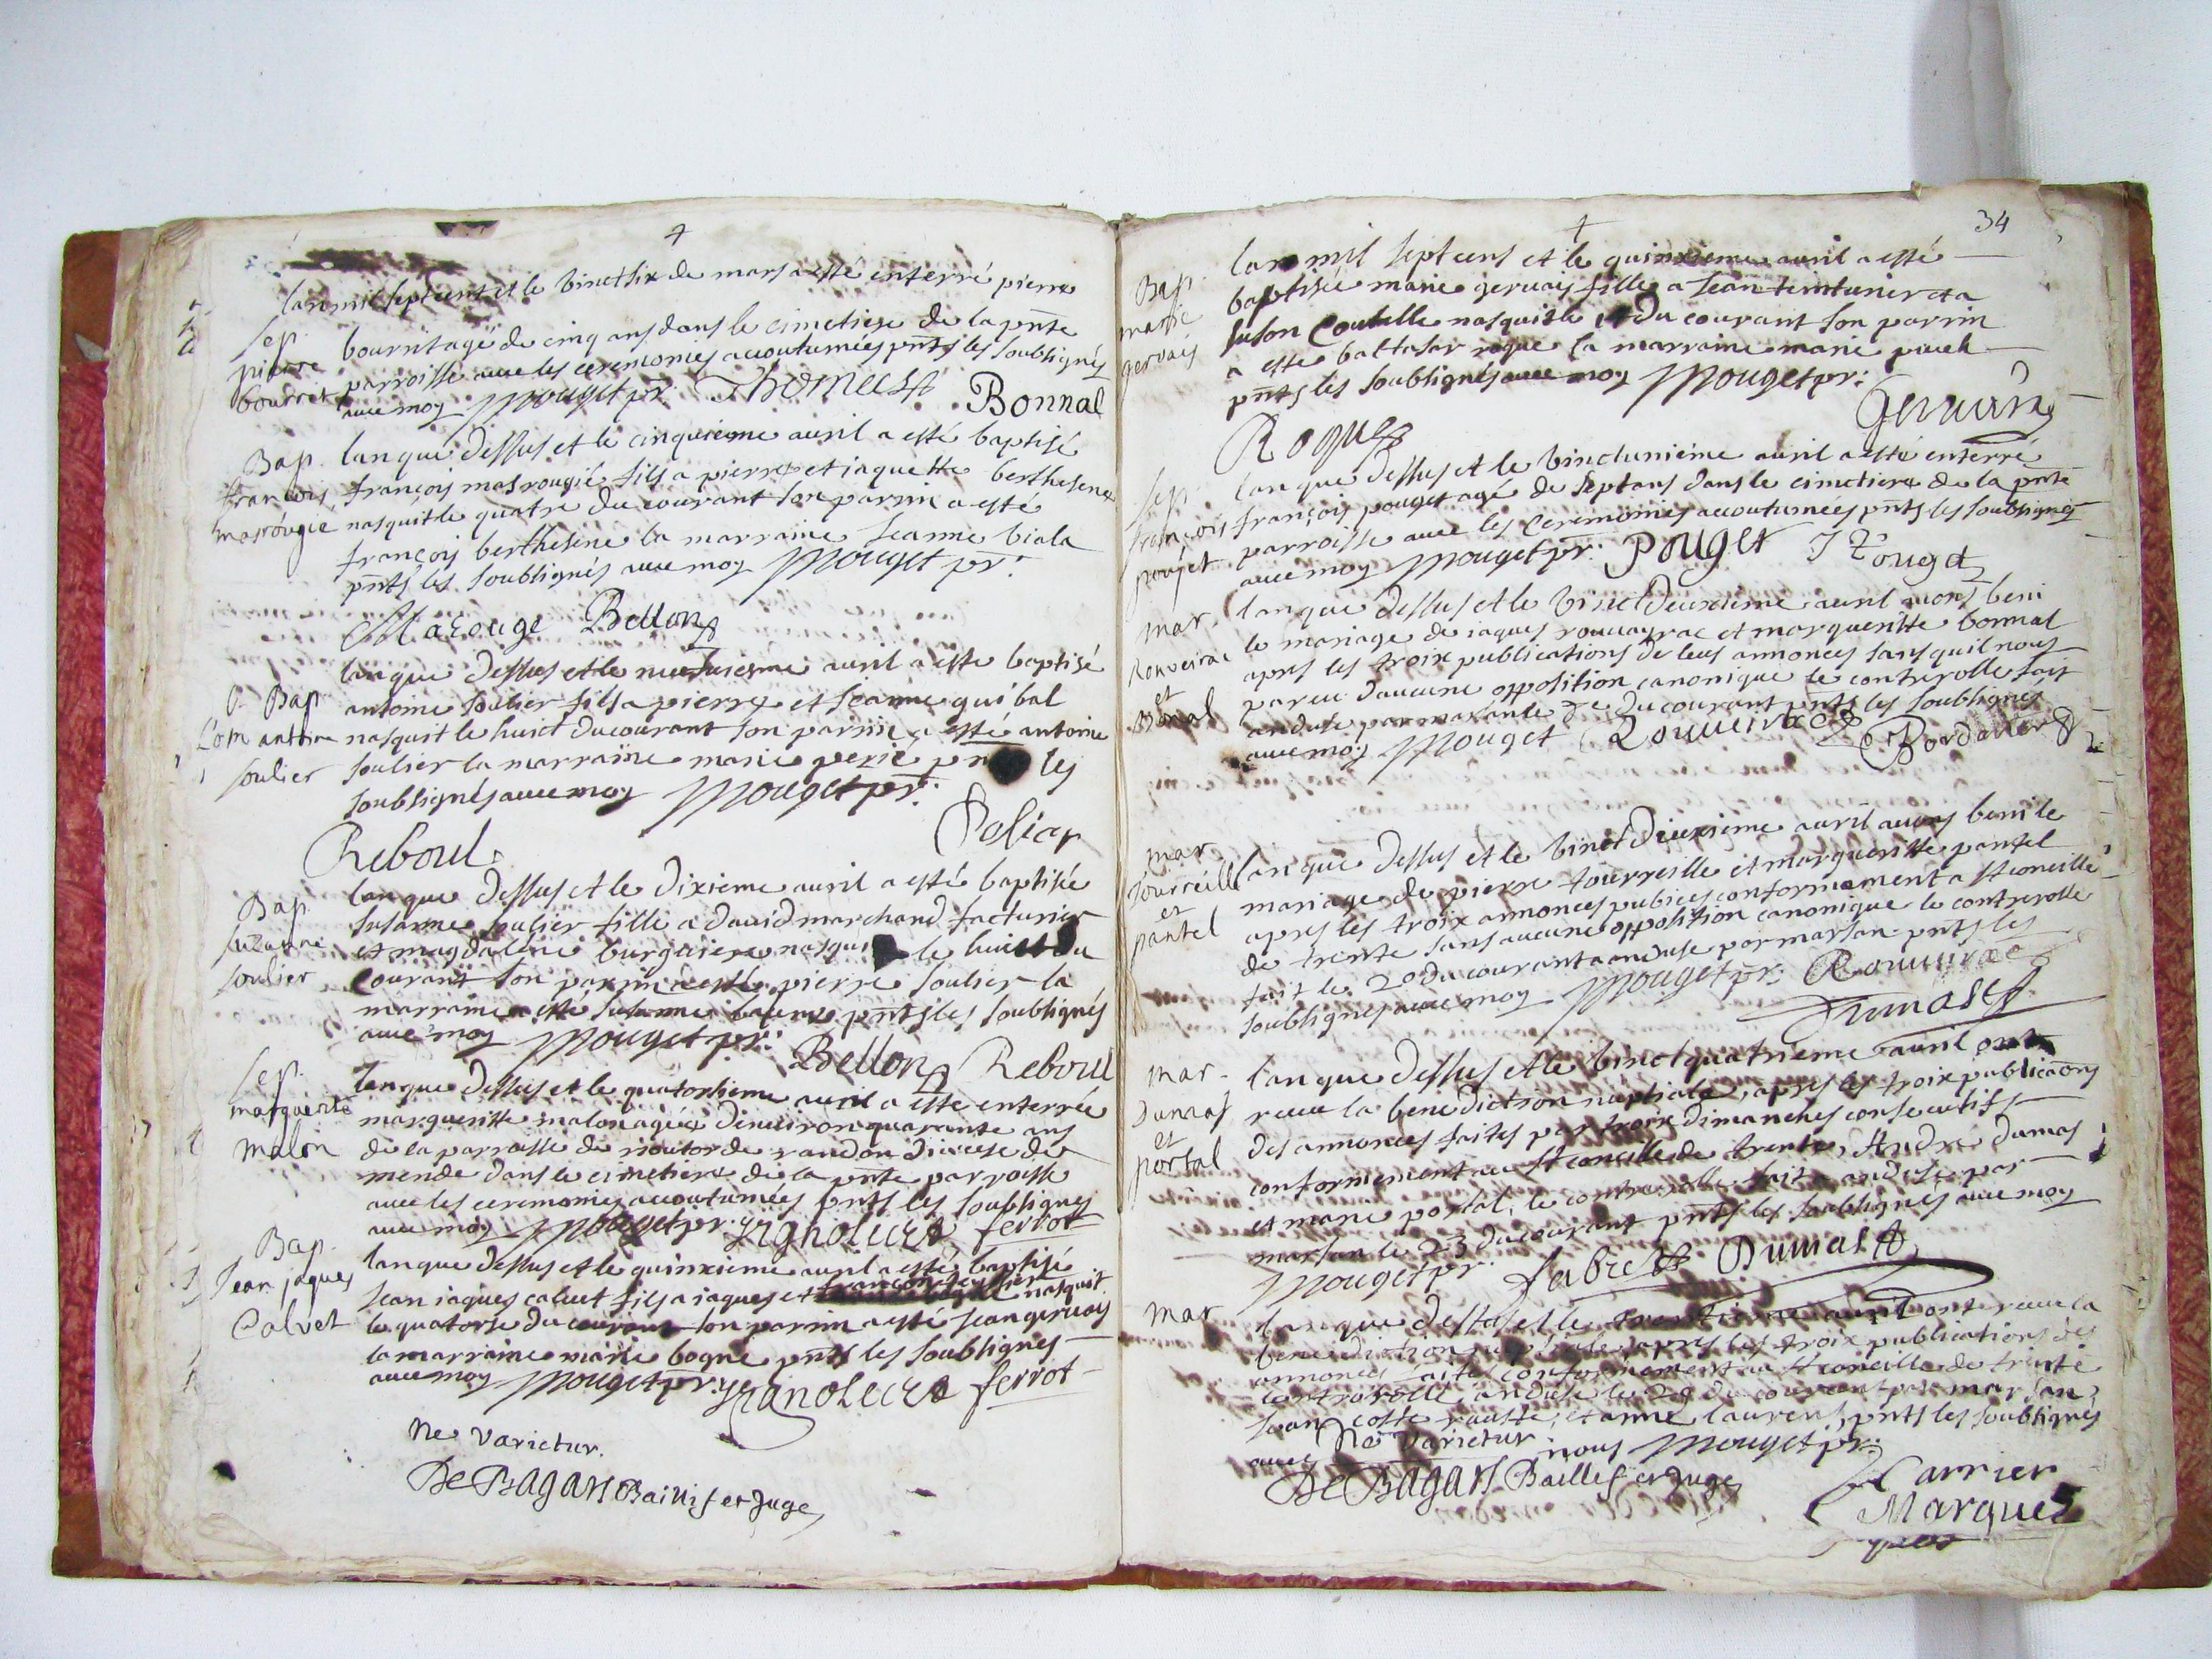 lan mil sept cens et le vinct six de mars a esté enterré pierre
Sep. pierre bourrit
bourrit agé de cinq ans dans le cimetiere de la pnte
parroisse avec les ceremonies accoutumées pnts les soubsignés
avec moy Mouget pr. Thomas Bonnal
Bap. francois masrougié
lan que dessus et le cinquieme avril a esté baptisé
françois masrougié fils a pierre et iaquette berthesene
nasquit le quatre du courant son parrin a esté
françois berthesene la marraine Jeanne viala
pnts les soubsignés avec moy Mouget pr.
Marouge Bellon
Bap. antoine soulier
lan que dessus et le neufvieme avril a este baptisé
antoine soulier fils a pierre et Jeanne quibal
nasquit le huict du courant son parrin a esté antoine
soulier la marraine marie perié les
soubsignés avec moy Mouget pr.
Reboul Solier
Bap. suzanne soulier
lan que dessus et le dixieme avril a esté baptisée
susanne soulier fille a david marchand facturier
et magdaleine burguiere le huict du
courant son parrin a esté pierre soulier la
marraine a esté susanne pnts les soubsignés
avec moy Mouget pr. Bellon Reboul
Sep. marguerite malon
lan que dessus et le quatorsieme avril a este enterrée
margueritte malon agée denviron quarante ans
de la parroisse de rioutor de randon diocese de
mende dans le cimetiere de la pnte parroisse
avec les ceremonies accoutumées pnts les soubsignes
avec moy Mouget pr. ferrot
Bap. Jean jaques Calvet
lan que dessus et le quinxieme avril a esté baptisé
Jean iaques calvet fils a iaques et nasquit
le quatorse du courant son parrin a esté Jean gervais
la marraine marie bogne pnts les soubsignes
avec moy Mouget pr. ferrot
Ne varietur.
De Bagars Baillif et Juge
34
Bap. marie gervais
lan mil sept cens et le quinxieme avril a esté
baptisée marie gervais fille a Jean teinturier et a
suson Coutelle nasquit le 14 du courant son parrin
a este baltasar roque la marraine marie puech
pnts les soubsignés avec moy Mouget pr.
Roques Gervais
Sep. françois poujet
lan que dessus et le vinct unieme avril a esté enterré
françois pouget agé de sept ans dans le cimetiere de la pnte
parroisse avec les Ceremonies accoutumées pnts les soubsignes
avec moy Mouget pr. Pouget J Pouget
mar. Rouveirac et Bonal
lan que dessus et le vinct deuxieme avril avons beni
le mariage de iaques rouvayrac et margueritte bonnal
apres les troix publications de leus annonces sans quil nous
parcu daucune opposition canonique le controrolle fait
anduse par marsan le du courant pnts les soubsignés
avec moy Mouget Rouveirac Bordarier
mar. tourreille et pantel
lan que dessus et le vinct deuxieme avril avons beni le
mariage de pierre tourreille et margueritte pantel
apres les troix annonces publiées conformement a st conseille
de trente sans aucune opposition canonique le controrolle
fait le 20 du courant a anduse par marsan pnts les
soubsignes avec moy Mouget pr. Rouveirac
Dumas
mar. Dumas et portal
lan que dessus et le vinct quatrieme avril ont
receu la benediction nuptiale, apres les troix publicaons
des annonces faites par troix dimanches consecutifs
conformement au st concille de trente, André dumas
et marie portal, le controrolle fait a anduse par
marsan le 23 du courant pnts les soubsignés avec moy
Mouget pr. Fabre Dumas
mar
lan que dessus et le trentieme avril ont receu la
benediction nuptiale apres les troix publications des
annonces faites conformement au st conseille de trente
controrolle anduse le 28 du courant par marsan,
Jean coste et anne laurens, pnts les soubsignés
avec nous Mouget pr.
Ne varietur.
De Bagars Baillif et Juge
Carrier
Marques